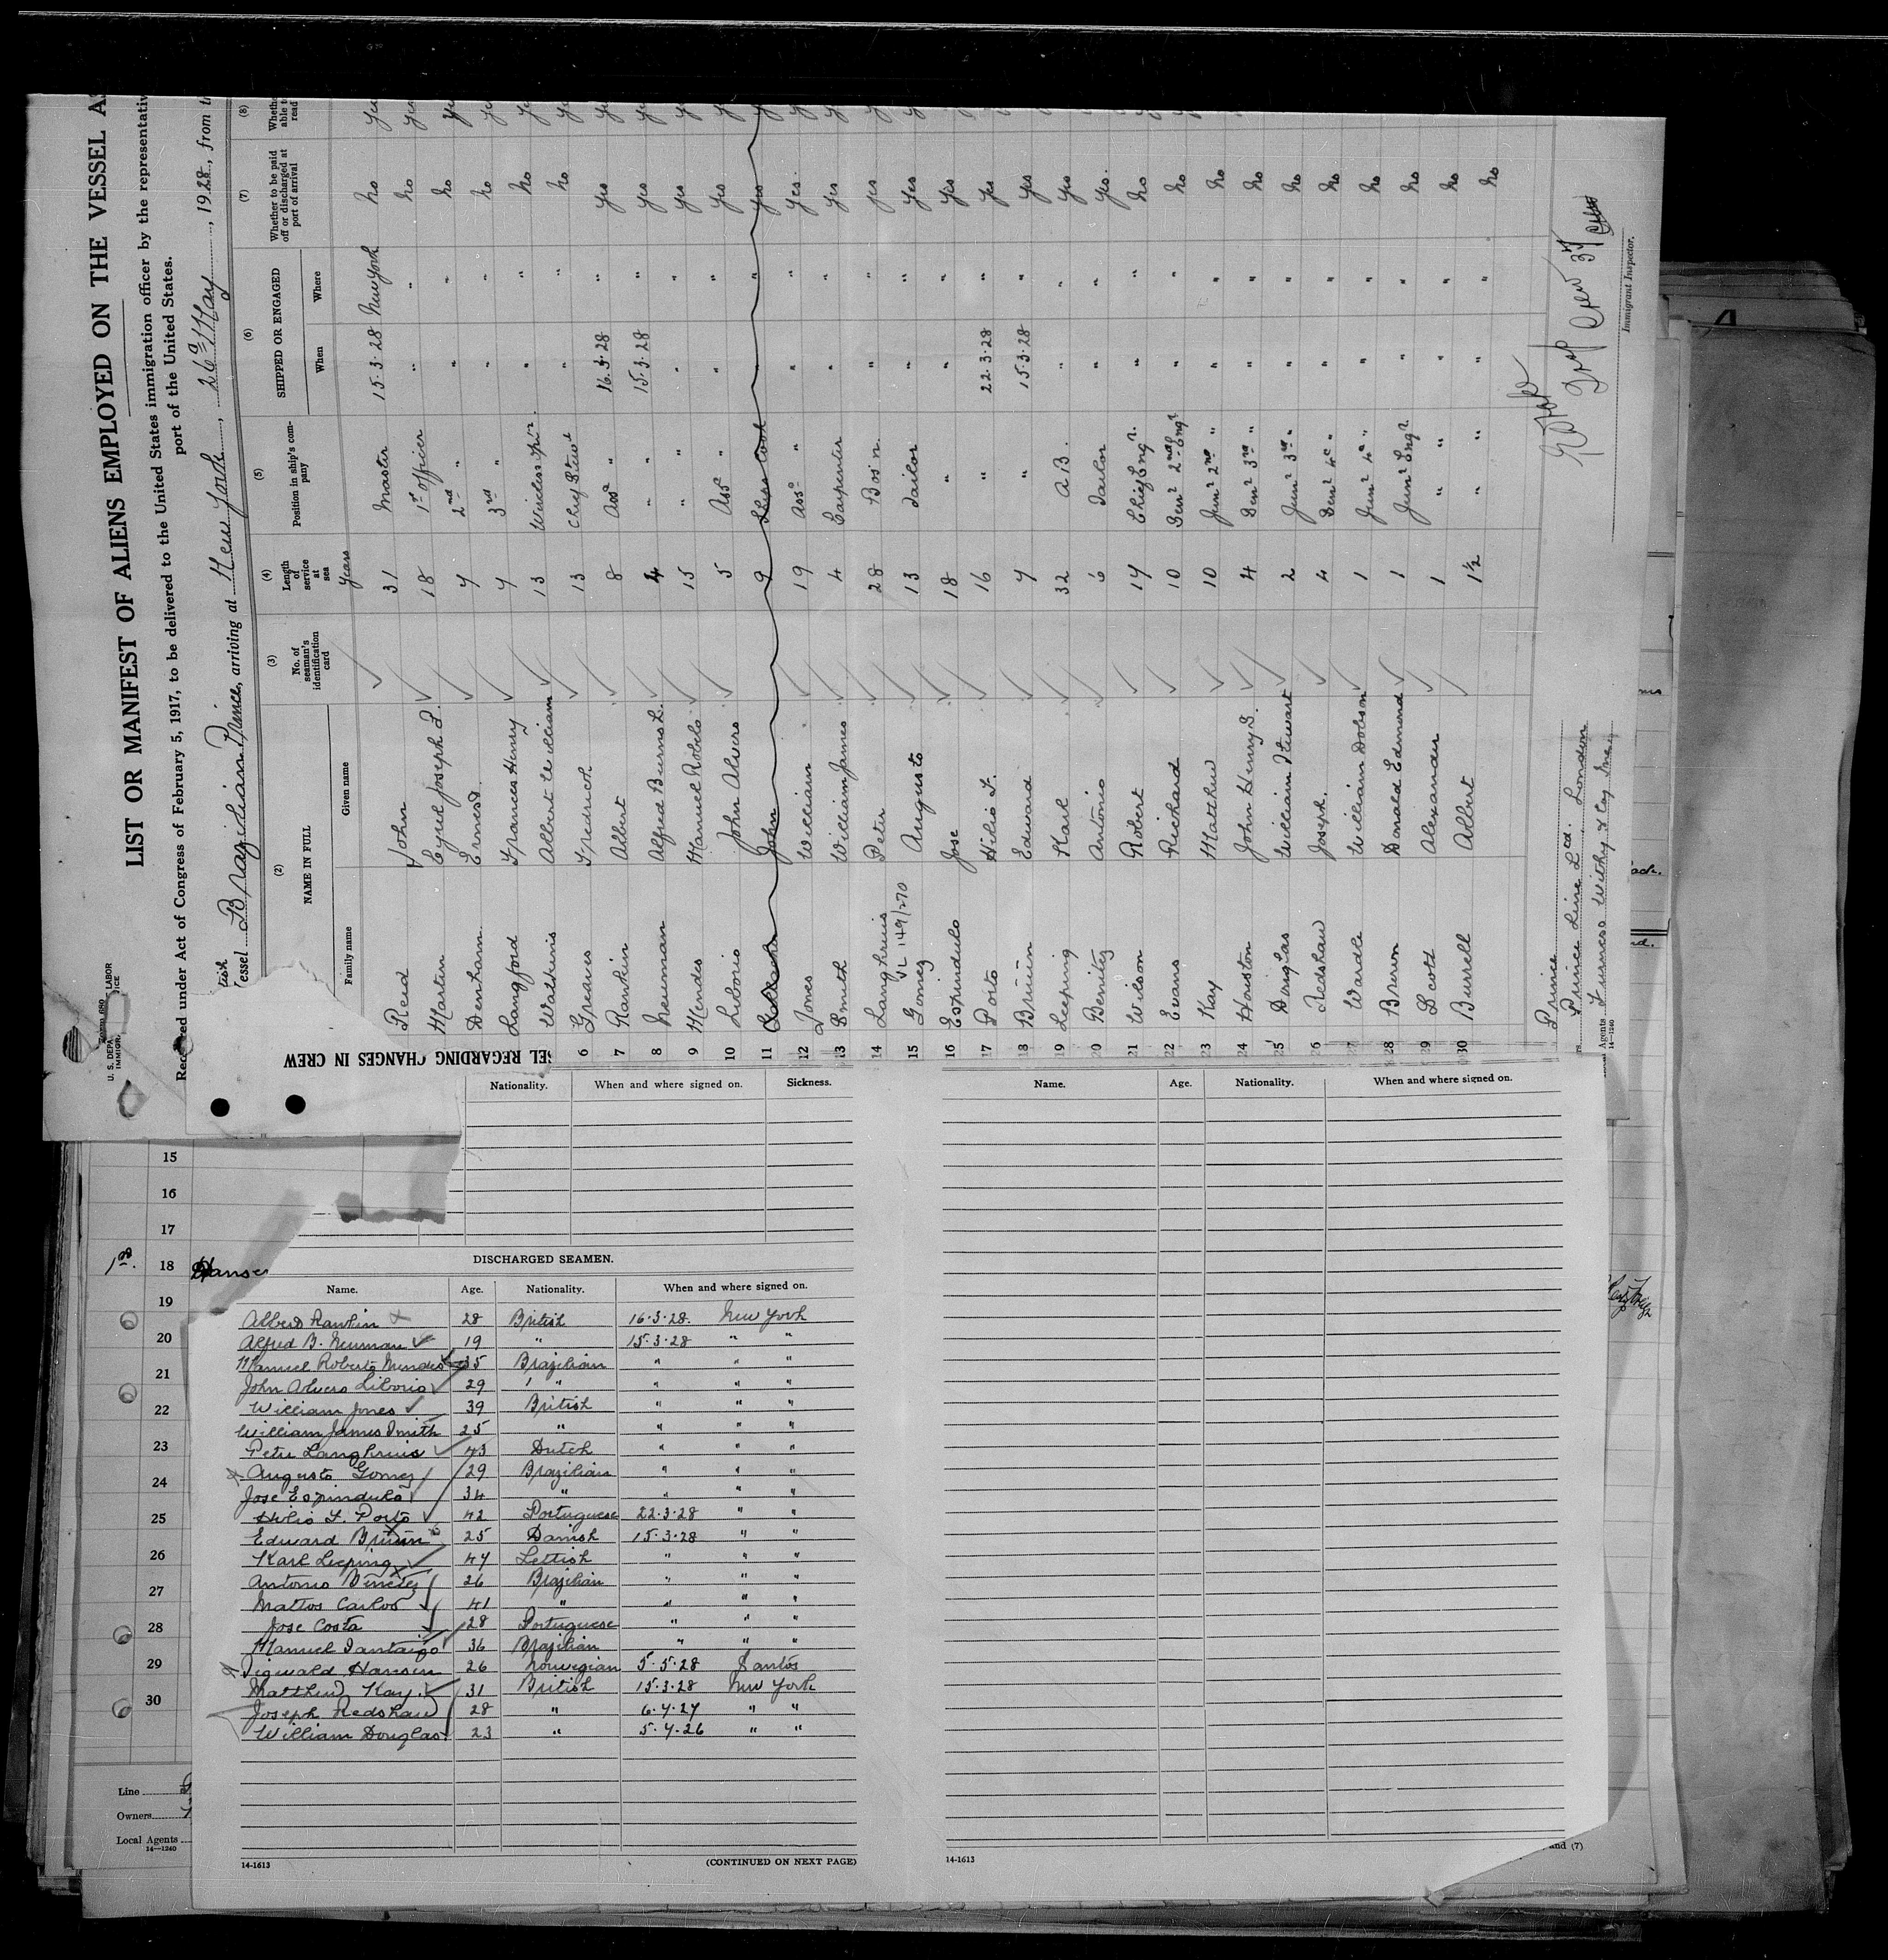 LIST OR MANIFEST OF ALIENS EMPLOYED ON THE VESSEL A
under Act of Congress of February 5, 1917, to be delivered to the United States immigration officer by the representativ
port of the United States.
essel Brazilian Prince, arriving at New York, 26th May, 1928, from
U. S. DEPA LABOR
IMMIGR ICE
(2) (3) (4) (5) (6) (7) (8)
NAME IN FULL
Family name Given name
No. of seaman's identification card
Length of service at sea
Position in ship's company
SHIPPED OR ENGAGED
When Where
Whether to be paid off or discharged at port of arrival
Years
Reid John 31 Master 15.3.28 New York no
Martin Cyril Joseph P. 18 1st Officer " " no
Denham Ernest 7 2nd " " " no
Langford Frances Henry 7 3rd " " " no
Watkins Albert William 13 Wireless Opr. " " no
6 Greaves Fredrick 13 Chief Stewd " " no
7 Rankin Albert 8 Asst " 16.3.28 " yes
8 Neuman Alfred Burns L. 4 " " 15.3.28 " yes
9 Mendes Manuel Roberto 15 " " " " yes
10 Liborio John Alvero 5 Asst " " " yes
11 John 9 Ships Cook " yes
12 Jones William 19 Asst " " " yes
13 Smith William James 4 Carpenter " " yes
14 Langhruis Peter 28 Bos'n. " " yes
VL 149/270
15 Gomez Augusto 13 Sailor " " yes
16 Espindulo Jose 18 " " " yes
17 Porto Hilio F. 16 " 22.3.28 " yes
18 Brüün Edward 7 " 15.3.28 " yes
19 Leeping Karl 32 A B. " " yes
20 Benitez Antonio 6 Sailor " " yes.
21 Wilson Robert 14 Chief Engr. " " no
22 Evans Richard 10 Senr 2nd Engr " " no
23 Kay Matthew 10 Junr 2nd " " " no
24 Houston John Henry S. 4 Senr 3rd " " " no
25 Douglas William Stewart 2 Junr 3rd " " " no
26 Redshaw Joseph. 4 Senr 4th " " " no
27 Wardle William Dobson 1 Junr 4th " " " no
28 Breron Donald Edmund 1 Junr Engr " " no
29 Scott Alexander 1 " " " " no
30 Burrell Albert 1½ " " " " no
Prince
Prince Line Ltd. London
Agents Furness Withy & Coy Inc.
14—1240
Crew 37
Immigrant Inspector.
SEL REGARDING CHANGES IN CREW
Nationality. When and where signed on. Sickness.
Name. Age. Nationality. When and where signed on.
15
16
17
18 Hansen
19
20
21
22
23
24
25
26
27
28
29
30
DISCHARGED SEAMEN.
Name. Age. Nationality. When and where signed on.
Albert Rankin 28 British 16.3.28. New York
Alfred B. Neuman 19 " 15.3.28 " "
Manuel Roberto Mendes 35 Brazilian " " "
John Alvero Liborio 29 " " " "
William Jones 39 British " " "
William James Smith 25 " " " "
Peter Langhruis 43 Dutch " " "
Augusto Gomez 29 Brazilian " " "
Jose Espindulo 34 " " " "
Hilio F. Porto 42 Portuguese 22.3.28 " "
Edward Brüün 25 Danish 15.3.28 " "
Karl Leeping 47 Lettish " " "
Antonio Benetez 26 Brazilian " " "
Mattos Carlos 41 " " " "
Jose Costa 28 Portuguese " " "
Manuel Santaigo 36 Brazilian " " "
Sigwald Hansen 26 Norwegian 5.5.28 Santos
Matthew Kay 31 British 15.3.28 New York
Joseph Redshaw 28 " 6.4.27 " "
William Douglas 23 " 5.4.26 " "
14-1613 (CONTINUED ON NEXT PAGE)
14-1613
Line
Owners
Local Agents
14—1240
and (7)